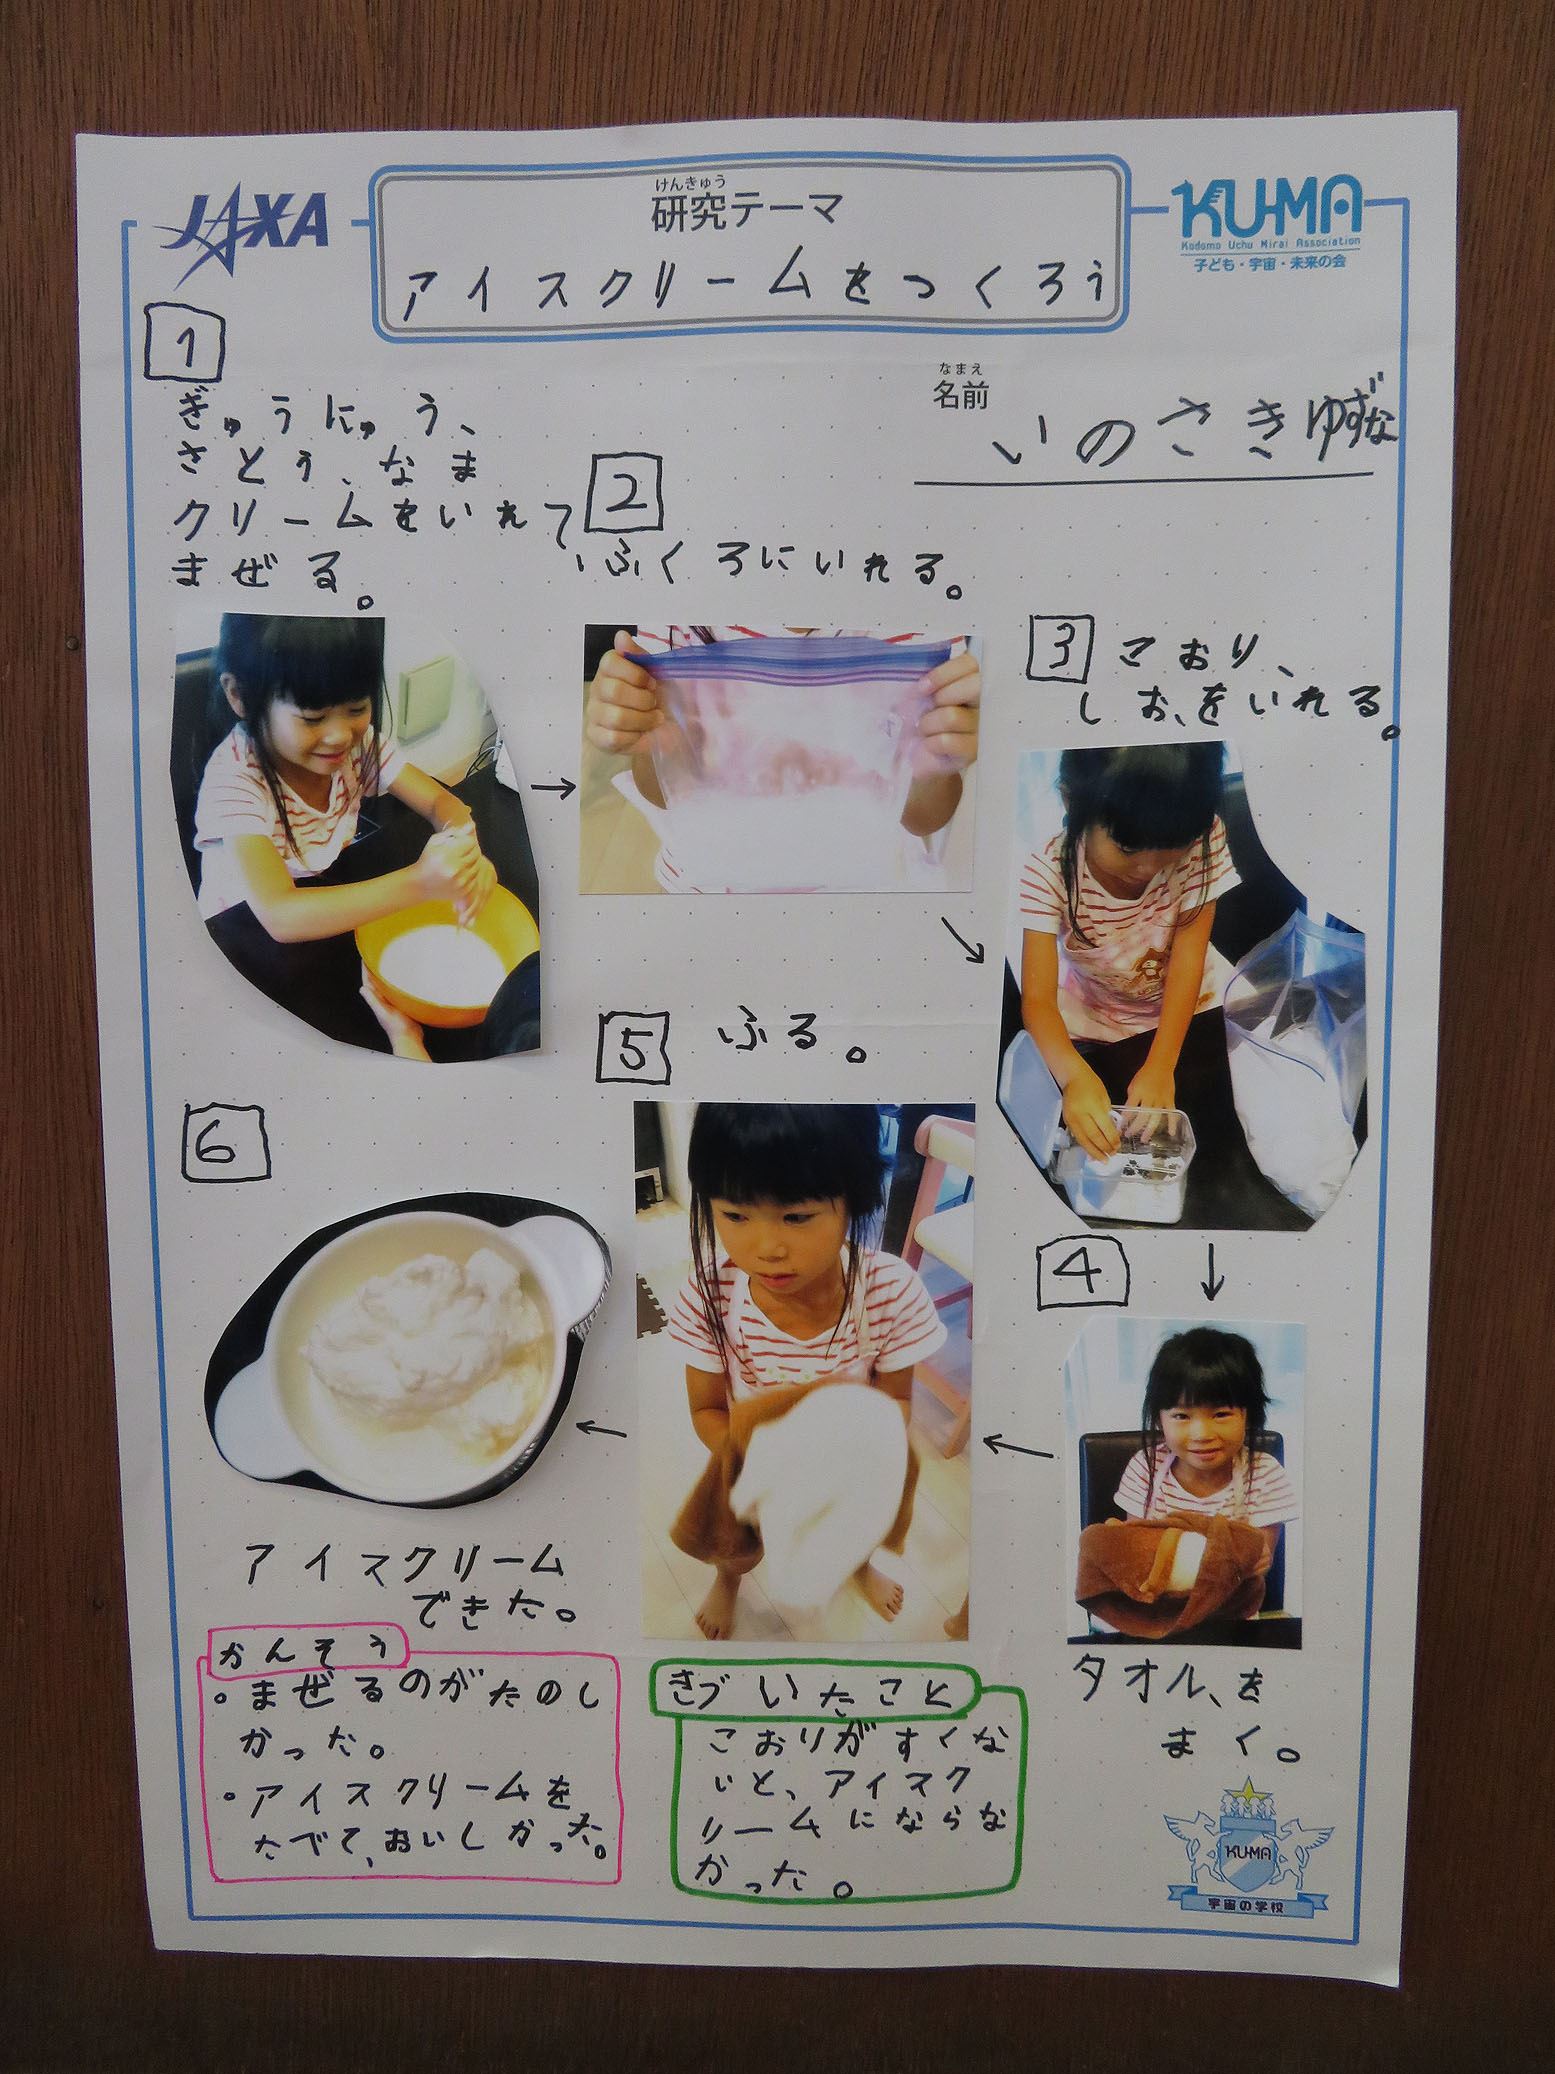 JAXA
けんきゅう
研究テーマ
アイスクリームをつくろう
KU-MA
Kodomo Uchu Mirai Association
子ども・宇宙・未来の会
なまえ
名前
いのさきゆずな
1
ぎゅうにゅう、
さとう、なま
クリームをいれて
まぜる。
2
ふくろにいれる。
3 こおり、
しお、をいれる。
4
タオル、を
まく。
5 ふる。
6
アイスクリーム
できた。
かんそう
・まぜるのがたのし
かった。
・アイスクリームを
たべて、おいしかった。
きづいたこと
こおりがすくな
いと、アイスク
リームにならな
かった。
KU-MA
宇宙の学校